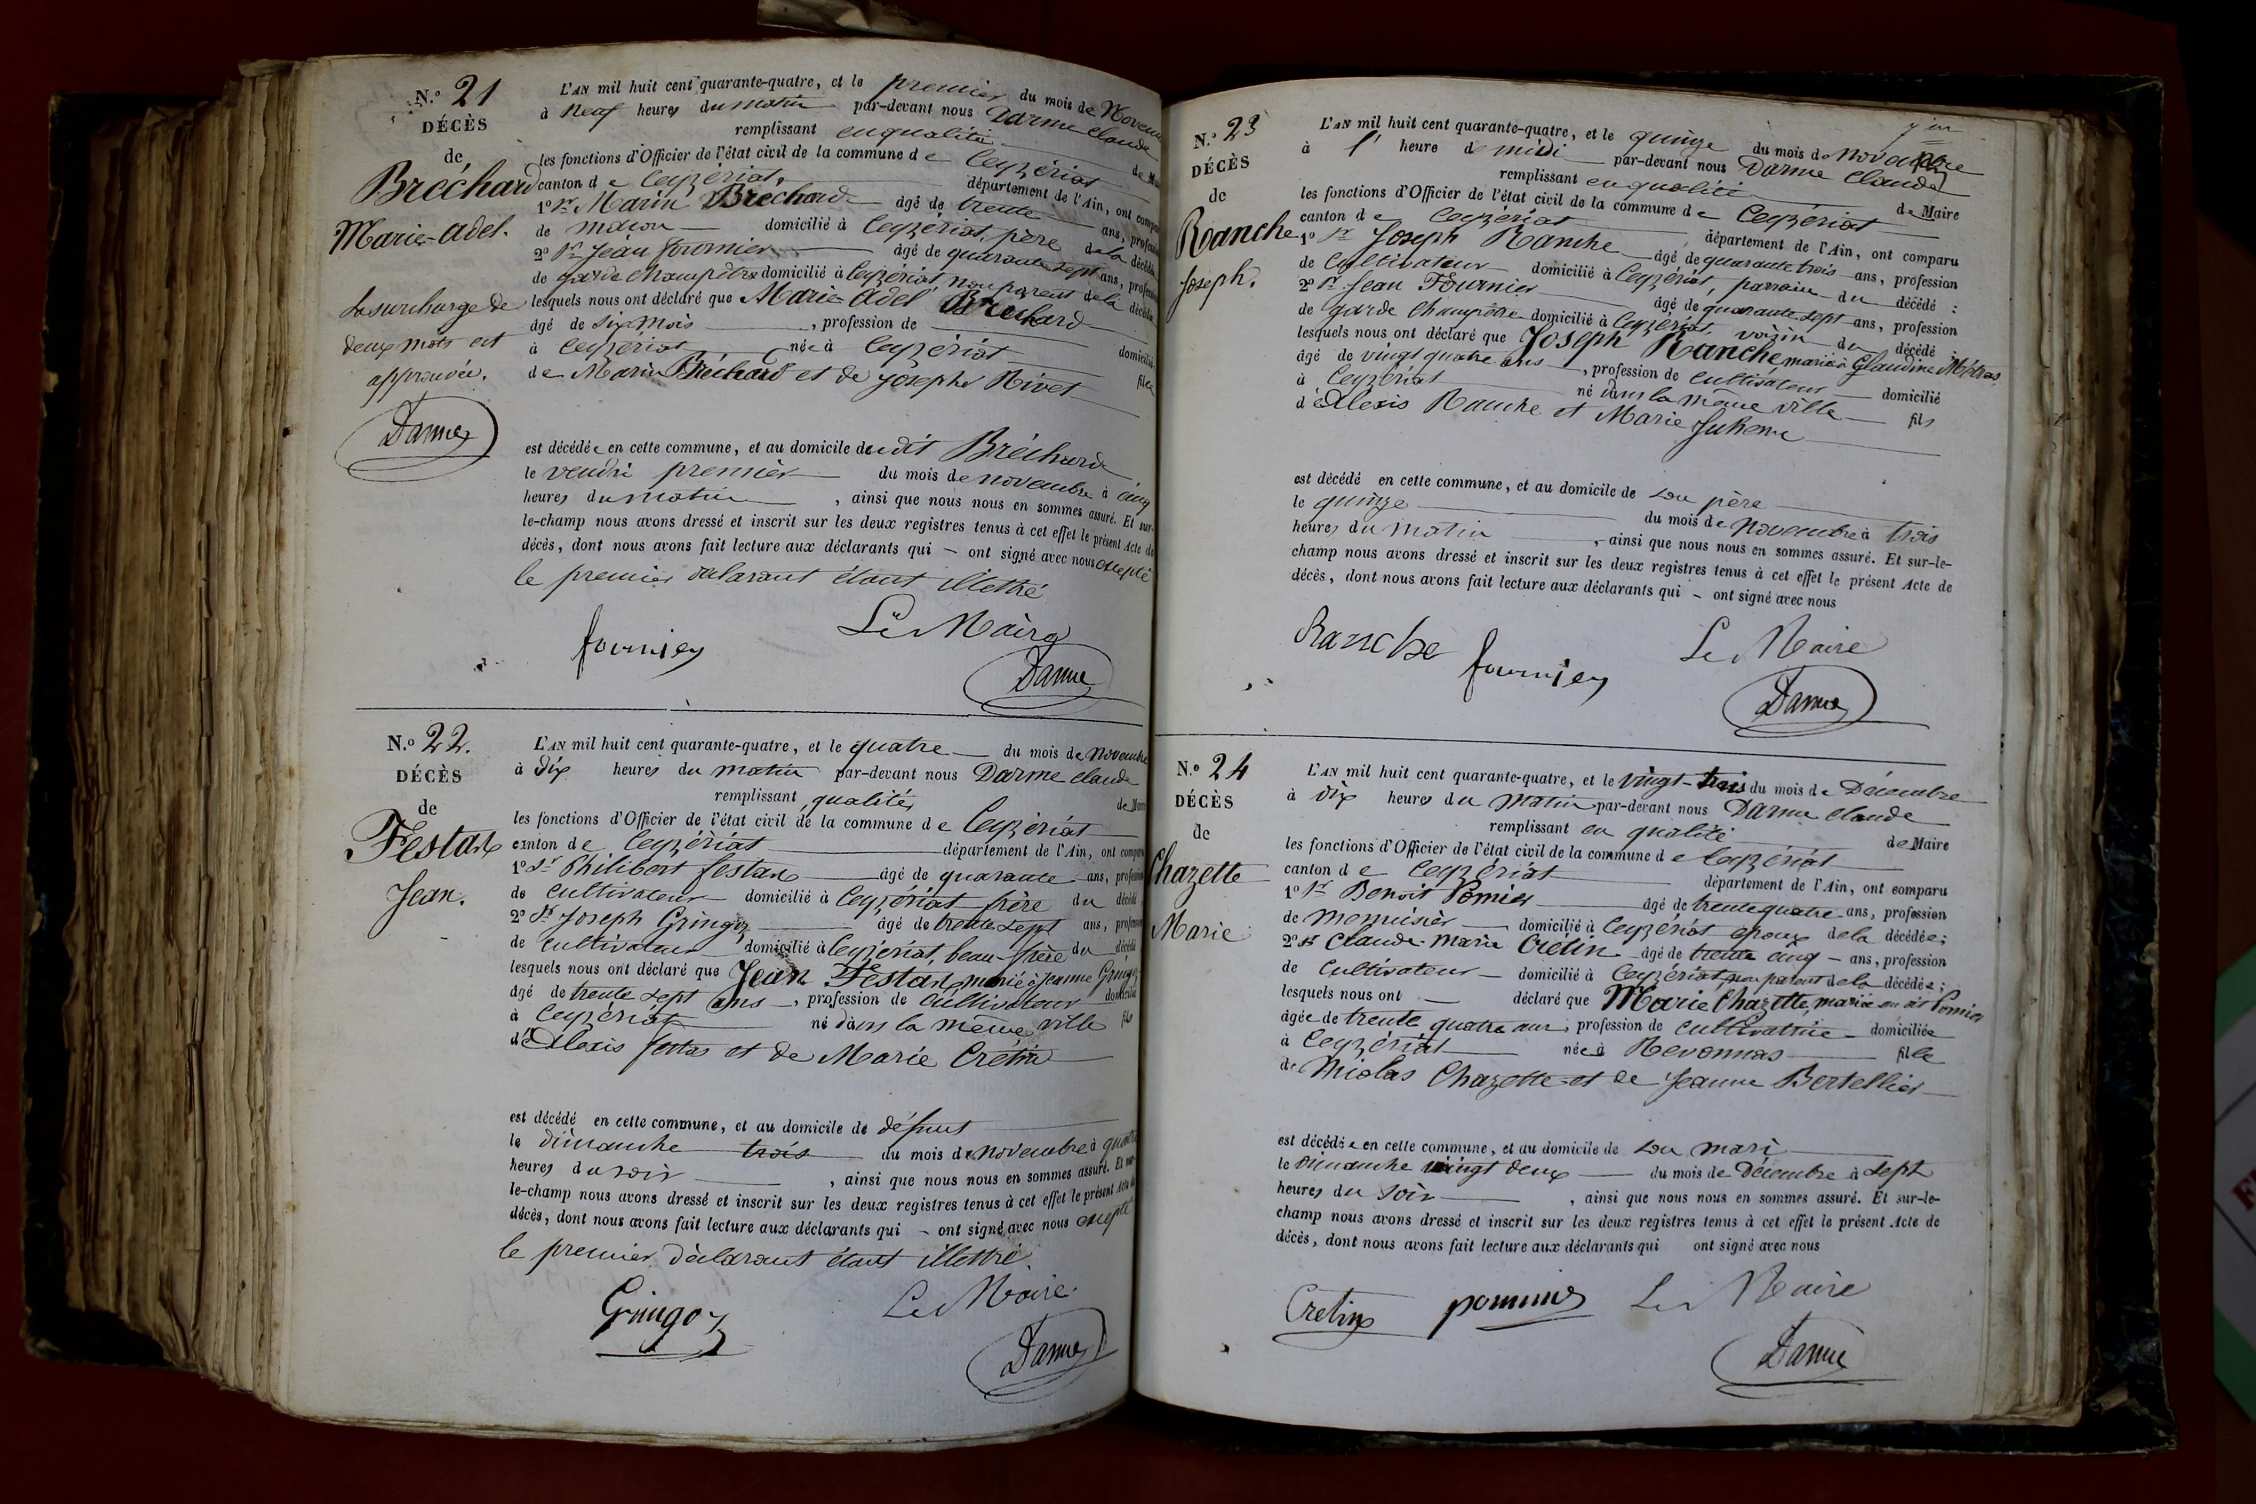 N.o 21
DÉCÈS
de
Bréchard
Marie-Adel.
La surcharge de
deux mots est
approuvée.
Darme
L'AN mil huit cent quarante-quatre, et le premier du mois de Novem
à neuf heures du matin par-devant nous Darme Claude
remplissant en qualité de Ma
les fonctions d'Officier de l'état civil de la commune de Ceyzériat
canton de Ceyzériat département de l'Ain, ont compa
1o Sr Marin Bréchard âgé de trente ans, profes
de maçon domicilié à Ceyzériat, père de la décédée
2o Sr Jean Fournier âgé de quarante sept ans, profes
de garde champêtre domicilié à Ceyzériat, non parent de la décédée
lesquels nous ont déclaré que Marie Adel Bréchard
âgé de six mois , profession de domicilié
à Ceyzériat née à Ceyzériat fille
de Marin Bréchard et de Josephe Rivet
est décédée en cette commune, et au domicile du dit Bréchard
le vendri premier du mois de novembre à cinq
heures du matin , ainsi que nous nous en sommes assuré. Et sur-
le-champ nous avons dressé et inscrit sur les deux registres tenus à cet effet le présent Acte de
décès, dont nous avons fait lecture aux déclarants qui – ont signé avec nous excepté
le premier déclarant étant illettré
fournier
Le Maire
Darme
N.o 22.
DÉCÈS
de
Festas
Jean.
L'AN mil huit cent quarante-quatre, et le quatre du mois de Novembre
à dix heures du matin par-devant nous Darme Claude
remplissant qualité de Maire
les fonctions d'Officier de l'état civil de la commune de Ceyzériat
canton de Ceyzériat département de l'Ain, ont comparu
1o Sr Philibert festas âgé de quarante ans, profession
de cultivateur domicilié à Ceyzériat frère du décédé
2o Sr Joseph Gringoz âgé de trente sept ans, profession
de cultivateur domicilié à Ceyzériat, beau-frère du décédé
lesquels nous ont déclaré que Jean Festas, marié à Jeanne Gringoz
âgé de trente sept ans , profession de cultivateur domicilié
à Ceyzériat né dans la même ville fils
d'Alexis festas et de Marie Crétin
est décédé en cette commune, et au domicile de défunt
le dimanche trois du mois de novembre à quatre
heures du soir , ainsi que nous nous en sommes assuré. Et sur-
le-champ nous avons dressé et inscrit sur les deux registres tenus à cet effet le présent Acte de
décès, dont nous avons fait lecture aux déclarants qui – ont signé avec nous excepté
le premier déclarant étant illettré.
Gringoz
Le Maire
Darme
N.o 23
DÉCÈS
de
Ranche
Joseph.
L'AN mil huit cent quarante-quatre, et le quinze du mois de novembre
à l' heure de midi par-devant nous Darme Claude
remplissant en qualité de Maire
les fonctions d'Officier de l'état civil de la commune de Ceyzériat
canton de Ceyzériat département de l'Ain, ont comparu
1o Sr Joseph Ranche âgé de quarante trois ans, profession
de Cultivateur domicilié à Ceyzériat, parrain du décédé :
2o Sr Jean Fournier âgé de quarante sept ans, profession
de garde champêtre domicilié à Ceyzériat, voisin du décédé
lesquels nous ont déclaré que Joseph Ranche marié à Claudine Métras
âgé de vingt quatre ans , profession de cultivateur domicilié
à Ceyzériat né dans la même ville fils
d'Alexis Ranche et Marie Juhenne
est décédé en cette commune, et au domicile de son père
le quinze du mois de novembre à trois
heures du matin , ainsi que nous nous en sommes assuré. Et sur-le-
champ nous avons dressé et inscrit sur les deux registres tenus à cet effet le présent Acte de
décès, dont nous avons fait lecture aux déclarants qui – ont signé avec nous
Ranche
fournier
Le Maire
Darme
N.o 24
DÉCÈS
de
Chazette
Marie
L'AN mil huit cent quarante-quatre, et le vingt-trois du mois de Décembre
à dix heures du matin par-devant nous Darme Claude
remplissant en qualité de Maire
les fonctions d'Officier de l'état civil de la commune de Ceyzériat
canton de Ceyzériat département de l'Ain, ont comparu
1o Sr Benoit Pomier âgé de trente quatre ans, profession
de menuisier domicilié à Ceyzériat époux de la décédée;
2o Sr Claude-Marie Crétin âgé de trente cinq ans, profession
de Cultivateur domicilié à Ceyzériat, non parent de la décédée;
lesquels nous ont déclaré que Marie Chazette, mariée au dit Pomier
âgée de trente quatre ans, profession de cultivatrice domiciliée
à Ceyzériat née à Revonnas fille
de Nicolas Chazette et de Jeanne Bertellier
est décédée en cette commune, et au domicile de son mari
le Dimanche vingt deux du mois de Décembre à sept
heures du soir , ainsi que nous nous en sommes assuré. Et sur-le-
champ nous avons dressé et inscrit sur les deux registres tenus à cet effet le présent Acte de
décès, dont nous avons fait lecture aux déclarants qui ont signé avec nous
Cretin
pommier
Le Maire
Darme